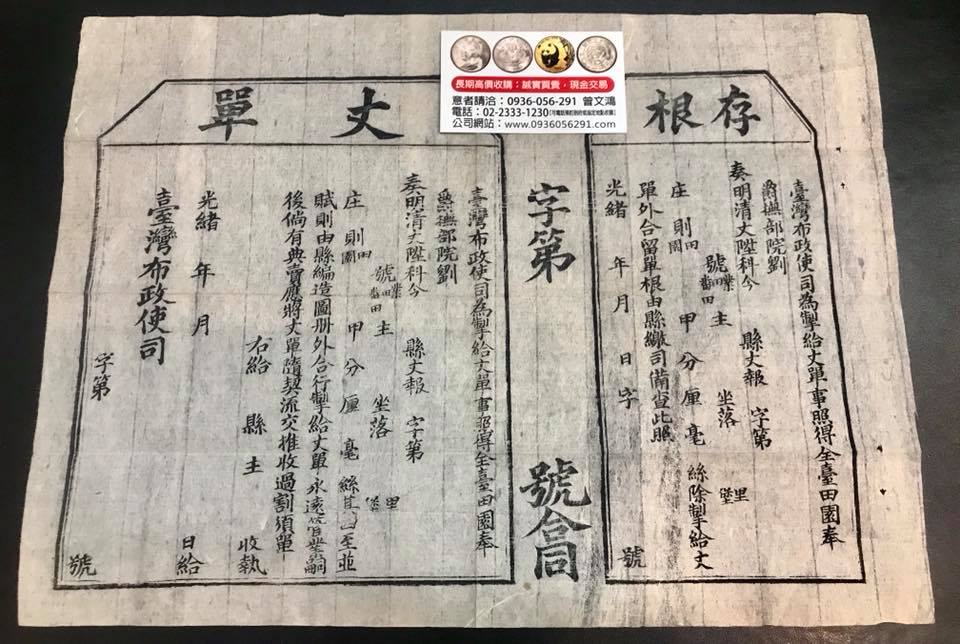 長期高價收購：誠實買賣，現金交易
意者請洽：0936-056-291 曾文鴻
電話：02-2333-1230
公司網站：www.0936056291.com
存根
臺灣布政使司為掣給丈單事照得全臺田園奉
爵撫部院劉
奏明清丈陞科今 縣丈報 字第
號 業田 番田 主 坐落 里堡
庄 則 田園 甲 分 厘 毫 絲除掣給丈
單外合留單根由縣繳司備查此照
光緒 年 月 日 字 號
字第 號合同
丈單
臺灣布政使司為掣給丈單事照得全臺田園奉
爵撫部院劉
奏明清丈陞科今 縣丈報 字第
號 業田 番田 主 坐落 里堡
庄 則 田園 甲 分 厘 毫 絲其四至並
賦則由縣編造圖册外合行掣給丈單永遠管業嗣
後倘有典賣應將丈單隨契流交推收過割須單
右給 縣 主 收執
光緒 年 月 日給
臺灣布政使司
字第 號